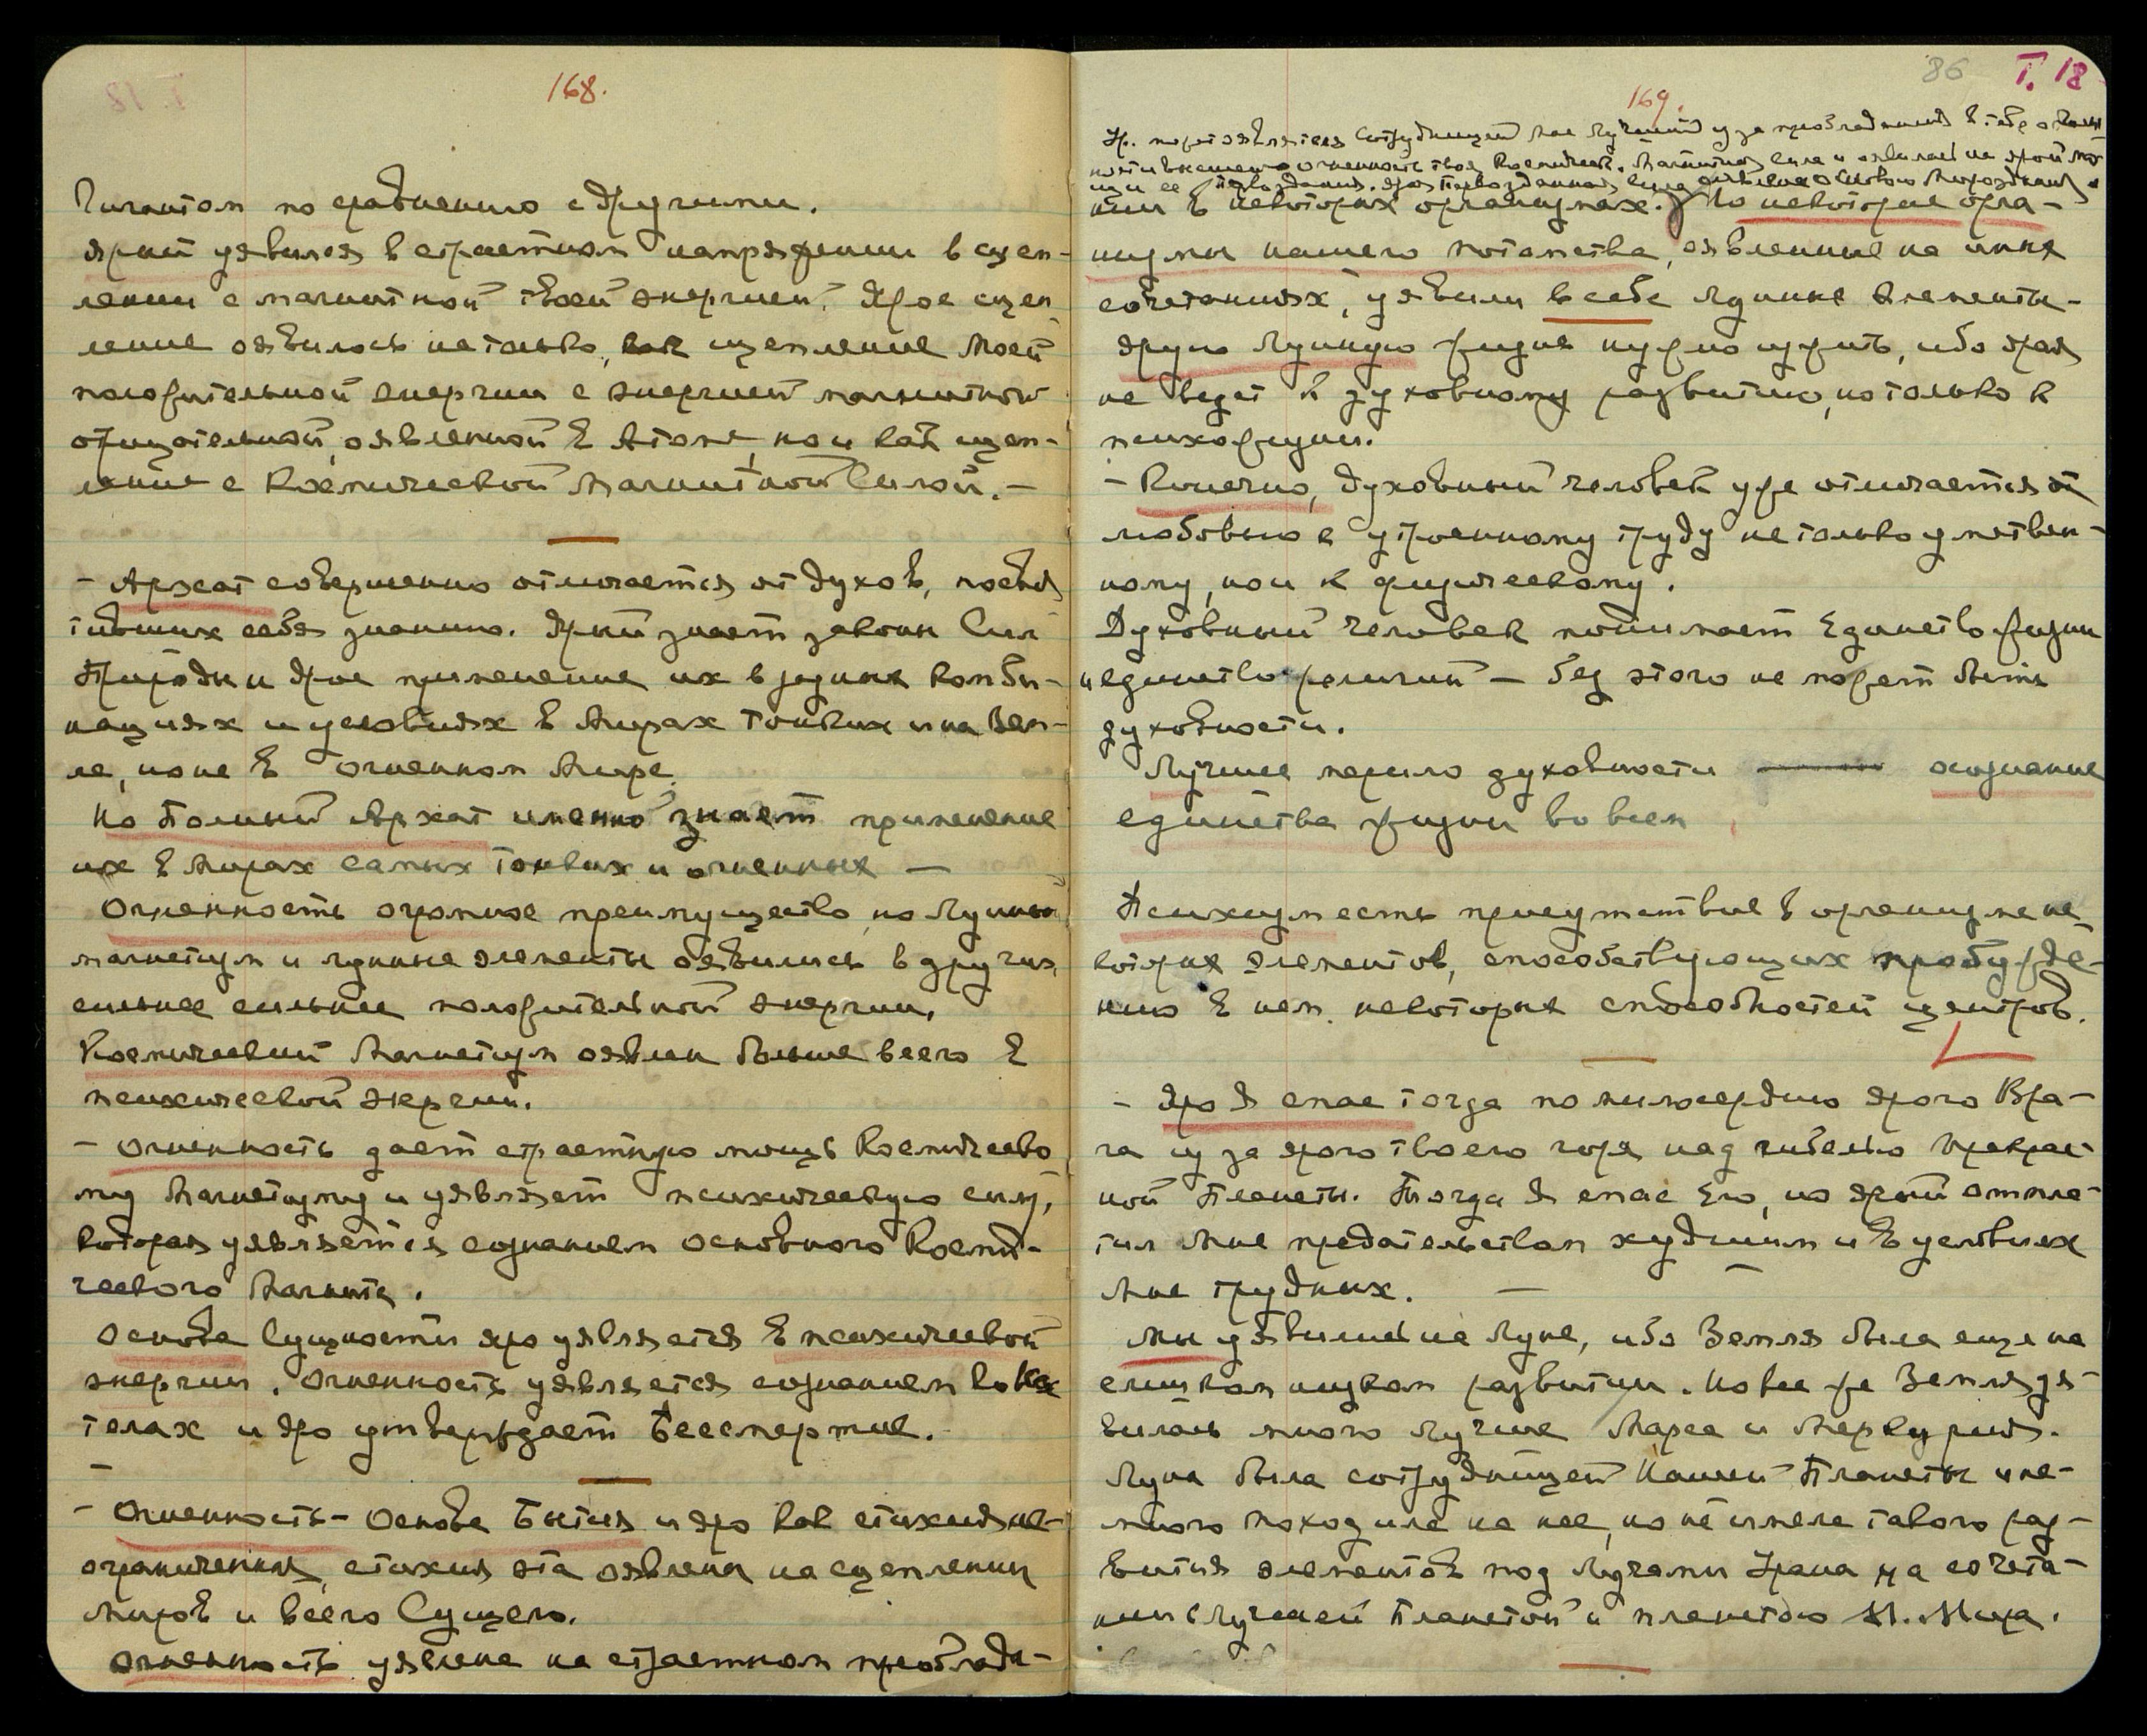 168.
Гигантом по сравнению с другими.
Ярый уявился в страстном напряжении в сцеп-
лении с магнитной твоей энергией. Ярое сцеп
ление оявилось не только, как сцепление Моей
положительной энергии с энергией магнитной
отрицательной, оявленной в Атоме, но и как сцеп-
ление с Космической Магнитной Силой. —
- Архат совершенно отличается от духов, посвя
тивших себя знанию. Ярый знает законы Сил
Природы и ярое применение их в разных комби-
нациях и условиях в Мирах Тонких и на Зем-
ле, но не в Огненном Мире.
Но Полный Архат именно знает применение
их в Мирах самых тонких и огненных —
Огненность огромное преимущество, но Лунный
магнетизм и лунные элементы оявились в других
сильнее сильные положительной энергии.
Космический Магнетизм оявлен больше всего в
психической энергии.
- Огненность дает страстную мощь Космическо
му Магнетизму и уявляет психическую силу,
которая уявляется сознанием Основного Косми-
ческого Магнита.
Основа Сущности яро уявляется в психической
энергии. Огненность уявляется сознанием во всех
телах и яро утверждает Бессмертие.
- Огненность - Основа Бытия и яро как стихия не-
ограниченная, стихия эта оявлена на сцеплении
Миров и всего Сущего.
Огненность уявлена на страстном преоблада-
86 T. 18
169.
Ур. может оявляться Сотрудницей Мне Лучшей из за преобладания в тебе
нии в некоторых организмах. Но некоторые орга-
низмы нашего потомства, оявленные на иных
сочетаниях, уявили в себе лунные элементы -
ярую Лунную жизнь нужно изжить, ибо ярая
не ведет к духовному развитию, но только к
психожизни.
- Конечно, духовный человек уже отличается
любовью к утроенному труду не только умствен-
ному, но и к физическому.
Духовный человек понимает Единство жизни
и единство религий — без этого не может быть
духовности.
Лучшее мерило духовности осознание
единства жизни во всем
Психизм есть присутствие в организме не-
которых элементов, способствующих пробужде-
нию в нем некоторых способностей центров.
- Яро Я спас тогда по милосердию ярого Вра-
га из за ярого твоего горя над гибелью прекрас-
ной Планеты. Тогда Я спас Его, но ярый отпла-
тил Мне предательством худшим и в условиях
Мне трудных. —
Мы уявились на Луне, ибо Земля была еще на
слишком низком развитии. Но все же Земля уя-
вилась много лучше Марса и Меркурия.
Луна была сотрудницей Нашей Планеты и не-
много походила на нее, но не имела такого раз-
вития элементов под Лучами Урана на сочета-
нии с Лучшей Планетой и планетою М. Мира.